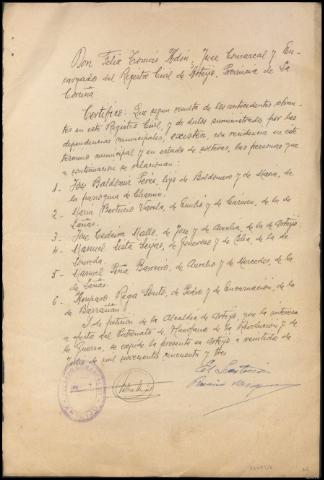 Don Felix Tomás Adín, Juez Comarcal y En-
cargado del Registro Civil de Arteijo, Provincia de La
Coruña
Certifico: Que según resulta de los antecedentes obran-
tes en este Registro Civil, y de datos suministrados por las
dependencias municipales, existen, con residencia en este
término municipal y en estado de solteras, las personas que
a continuación se relacionan:
1.- José Baldomir Pérez, hijo de Baldomero y de María, de
la parroquia de
2.- María Varela, de Emilio y de Carmen, de la de
Lañas
3.- José Mallo, de José y de Amalia, de la de Arteijo
4.- Manuel de Generosa, de la de
5.- Manuel Peña Barreiro, de Aurelio y de Mercedes, de la
de Lañas
6.- Rega Souto, de Pedro y de Encarnación, de la
de Barrañán
Y de petición de la Alcaldía de Arteijo, que lo interesa
a efectos del Patronato de Huérfanos de la Revolución y de
la Guerra, se expide la presente en Arteijo a veintidós de
de mil novecientos cincuenta y tres
El Secretario